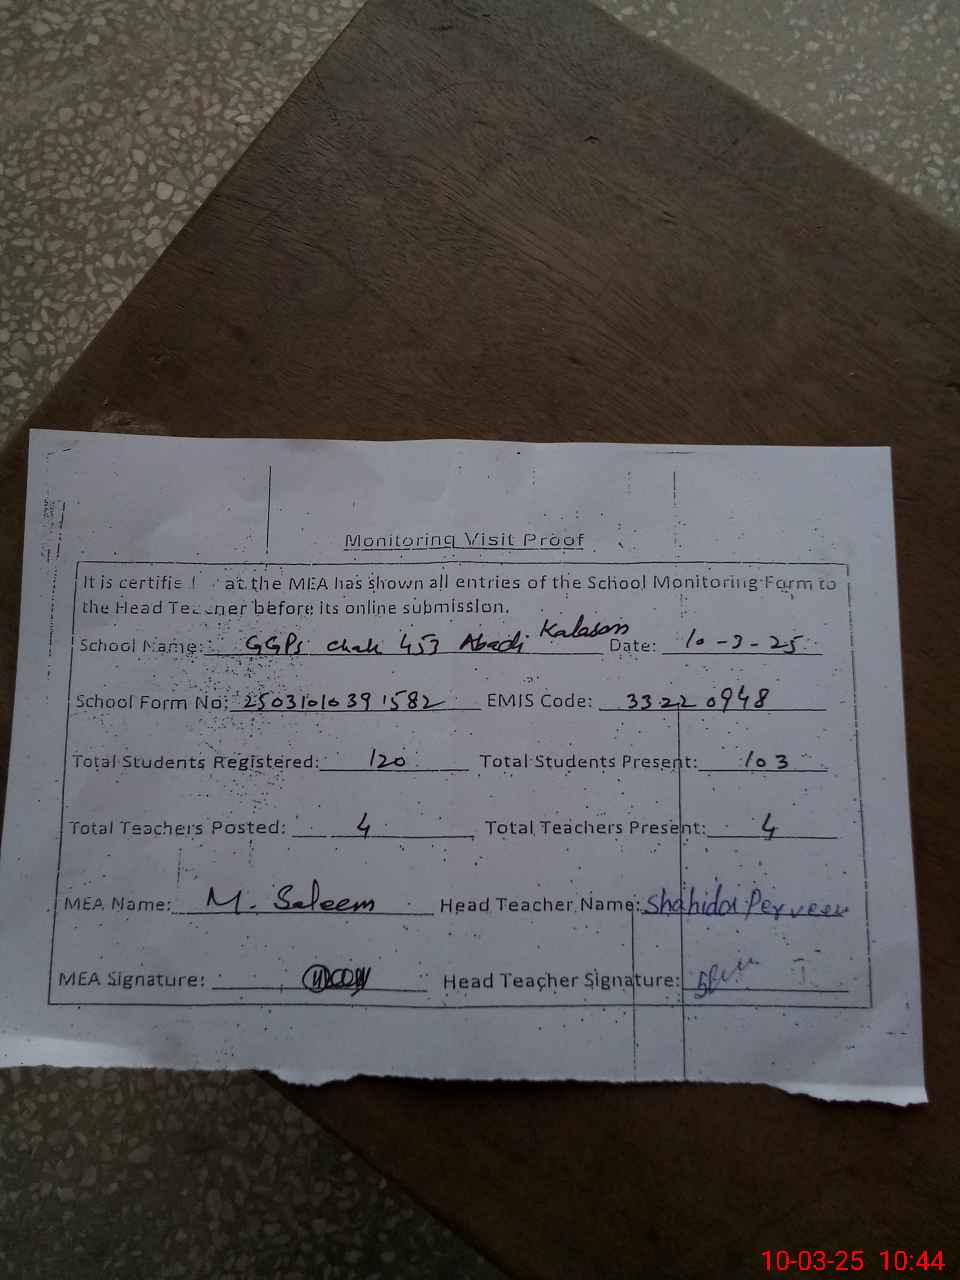 Monitoring Visit Proof
It is certifie at the MEA has shown all entries of the School Monitoring Form to
the Head Teacher before its online submission.
School Name: GGPS Chak 453 Abadi Kalason Date: 10-3-25
School Form No: 25031010391582 EMIS Code: 33220948
Total Students Registered: 120 Total Students Present: 103
Total Teachers Posted: 4 Total Teachers Present: 4
MEA Name: M. Saleem Head Teacher Name: Shahida Perveen
MEA Signature: Head Teacher Signature:
10-03-25 10:44